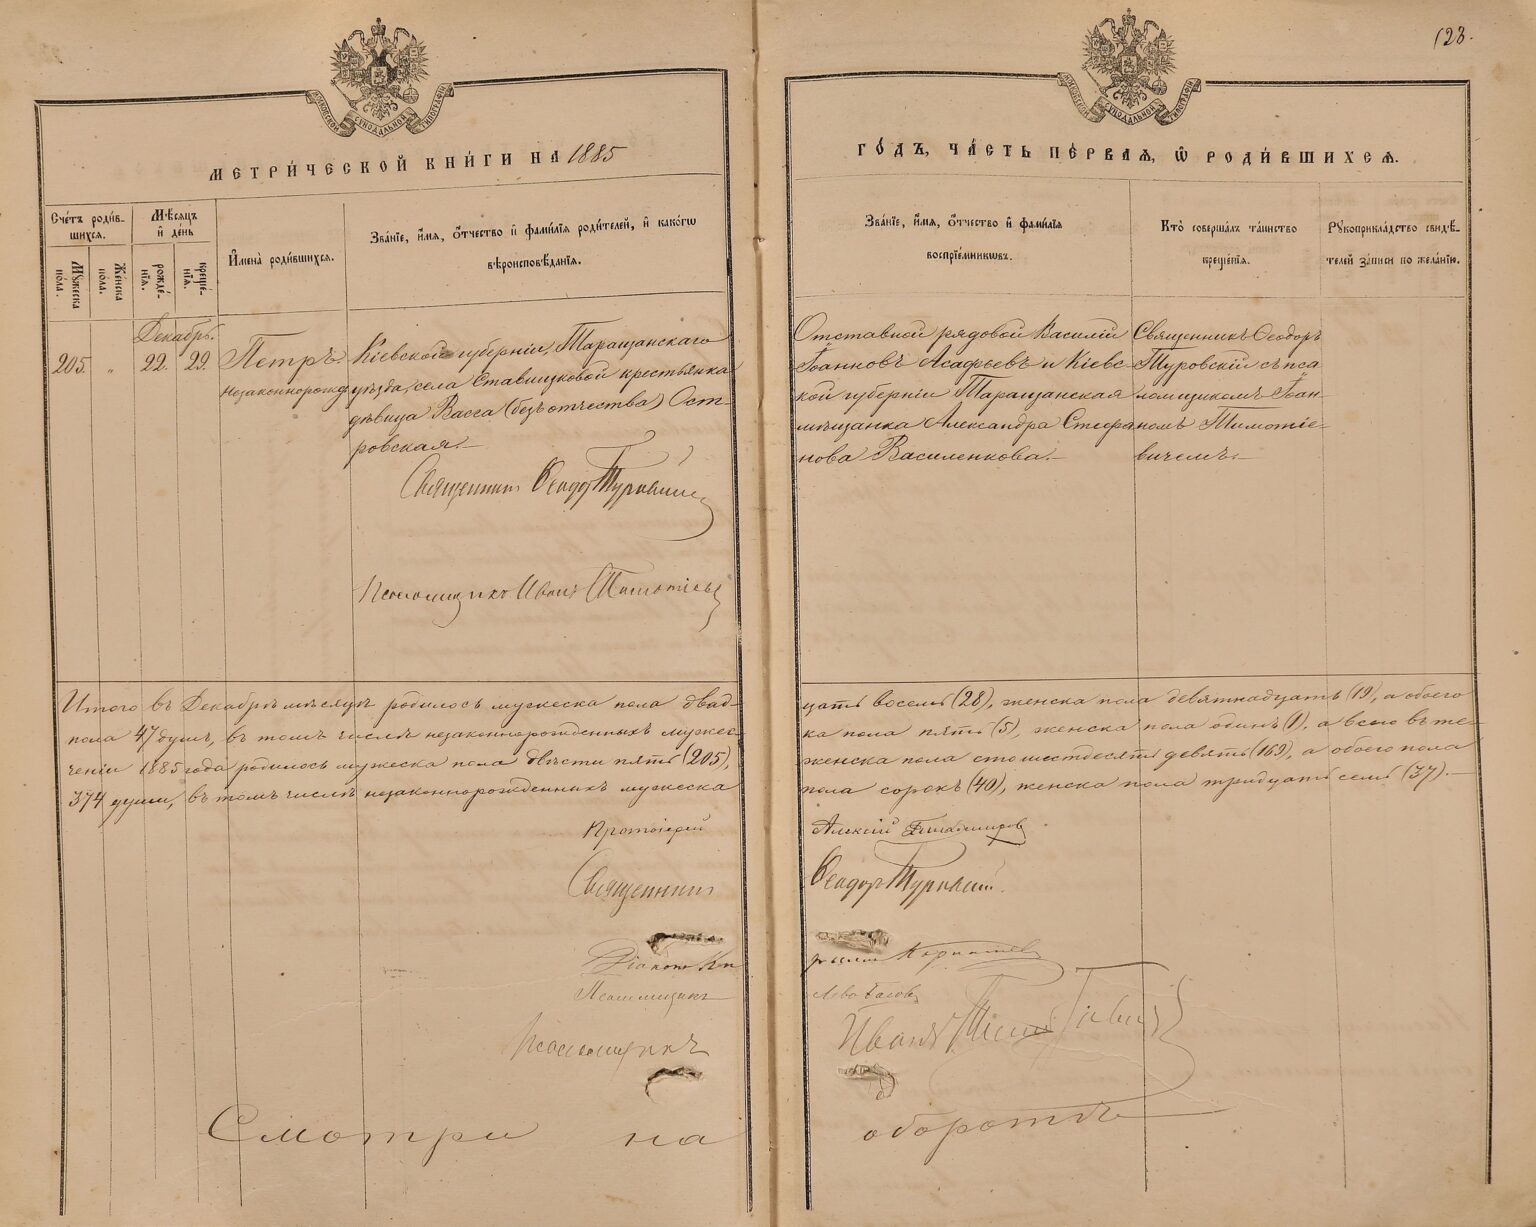 128.
МОСКОВСКОЙ СѴНОДАЛЬНОЙ ТИПОГРАФІИ
МОСКОВСКОЙ СѴНОДАЛЬНОЙ ТИПОГРАФІИ
МЕТРИ́ЧЕСКОЙ КНИ́ГИ НА 1885
ГО́ДЪ, ЧА́СТЬ ПЕ́РВАѦ, Ѽ РОДИ́ВШИХСѦ.
Сче́тъ роди́в-
шихсѧ.
Мѣ́сѧцъ
и҆ де́нь
И҆мена̀ роди́вшихсѧ.
Зва́нїе, и҆́мѧ, ѻ҆́тчество и҆ фами́лїѧ роди́телей, и҆ како́гѡ
вѣроисповѣ́данїѧ.
Му́жеска
по́ла.
Же́нска
по́ла.
рожде́-
нїѧ.
креще́-
нїѧ.
Зва́нїе, и҆́мѧ, ѻ҆́тчество и҆ фами́лїѧ
воспрїе́мникѡвъ.
Кто̀ соверша́лъ та́инство
креще́нїѧ.
Рꙋкоприкла́дство свидѣ́-
телей за́писи по жела́нїю.
Декабрь.
205. „ 22. 29. Петръ
незаконнорожд.
Кіевской губерніи, Таращанскаго
уѣзда, села Ставищковой крестьянка
дѣвица Васса (безъ отчества) Ост-
ровская.—
Священникъ Ѳеодоръ Туровскій
Псаломщикъ Иванъ Тимотіевичъ
Отставной рядовой Василій
Іоанновъ Асафьевъ и Кіевс-
кой губерніи Таращанская
мѣщанка Александра Стефа-
нова Василенкова.—
Священникъ Ѳеодоръ
Туровскій съ пса-
ломщикомъ Іоан-
номъ Тимотіе-
вичемъ.—
Итого въ Декабрѣ мѣсяцѣ родилось мужеска пола двад-
цать восемь (28), женска пола девятнадцать (19), а обоего
пола 47 душъ, въ томъ числѣ незаконнорожденныхъ мужес-
ка пола пять (5), женска пола одинъ (1), а всего въ те-
ченіи 1885 года родилось мужеска пола двѣсти пять (205),
женска пола сто шестьдесятъ девять (169), а обоего пола
374 души, въ томъ числѣ незаконнорожденныхъ мужеска
пола сорокъ (40), женска пола тридцать семь (37).—
Протоіерей Алексій
Священникъ Ѳеодоръ Туровскій.
Діаконъ
Псаломщикъ
Псаломщикъ Иванъ
Смотри на оборотѣ